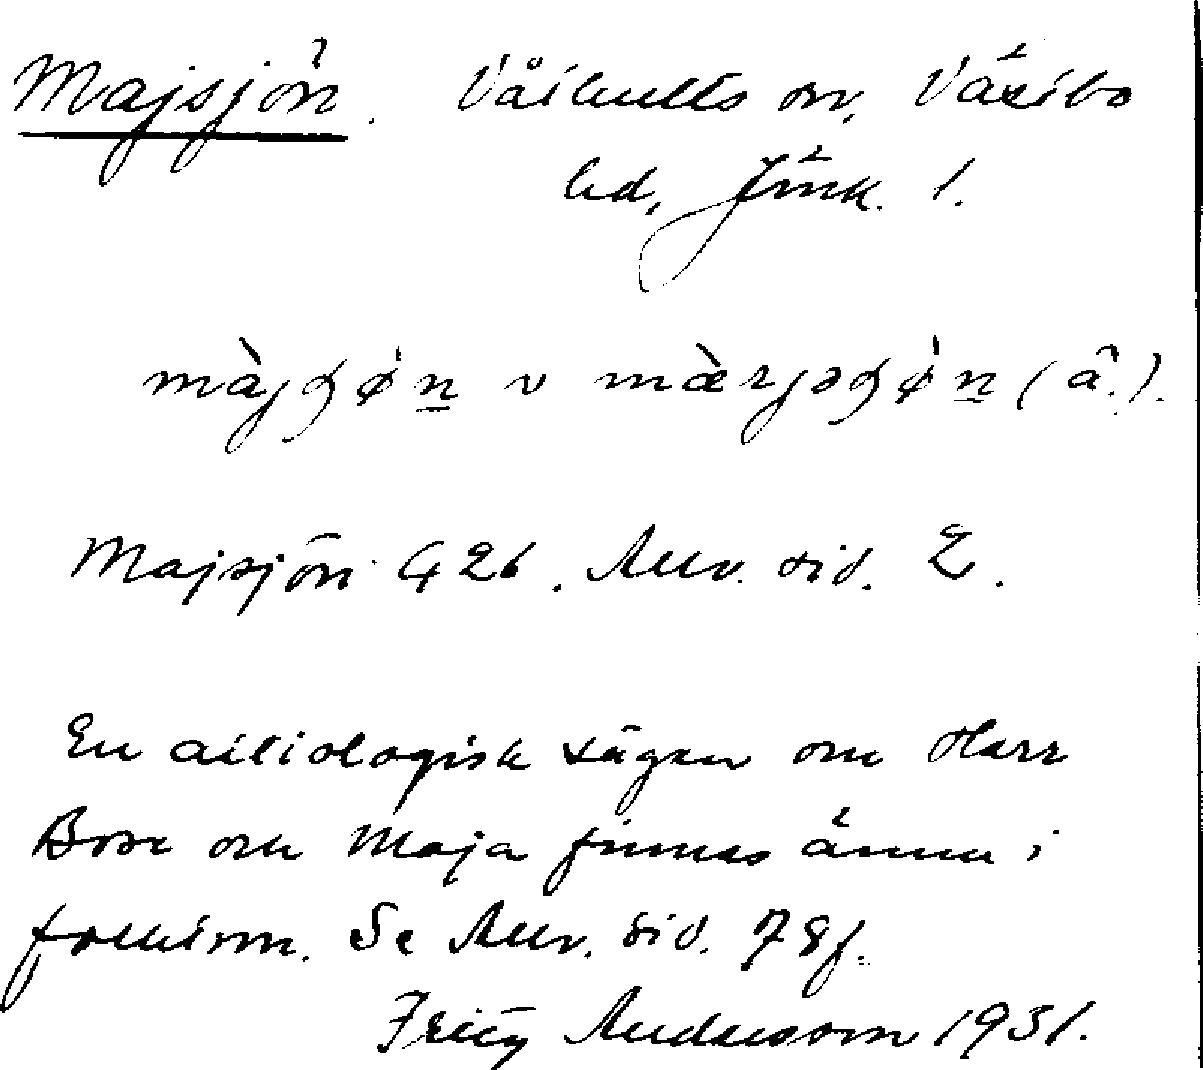 Majsjön. Våthults sn, Västbo
hd, Jönk. l.
màjɧø̀n̲ v mæ̀rjəɧø̀n̲ (â.).
Majsjön G 26. Anv. sid. 2.
En aitiologisk sägen om Herr
Bose och Maja finnes ännu i
folkminn. Se Anv. sid. 78f.
Fritz Andersson 1931.